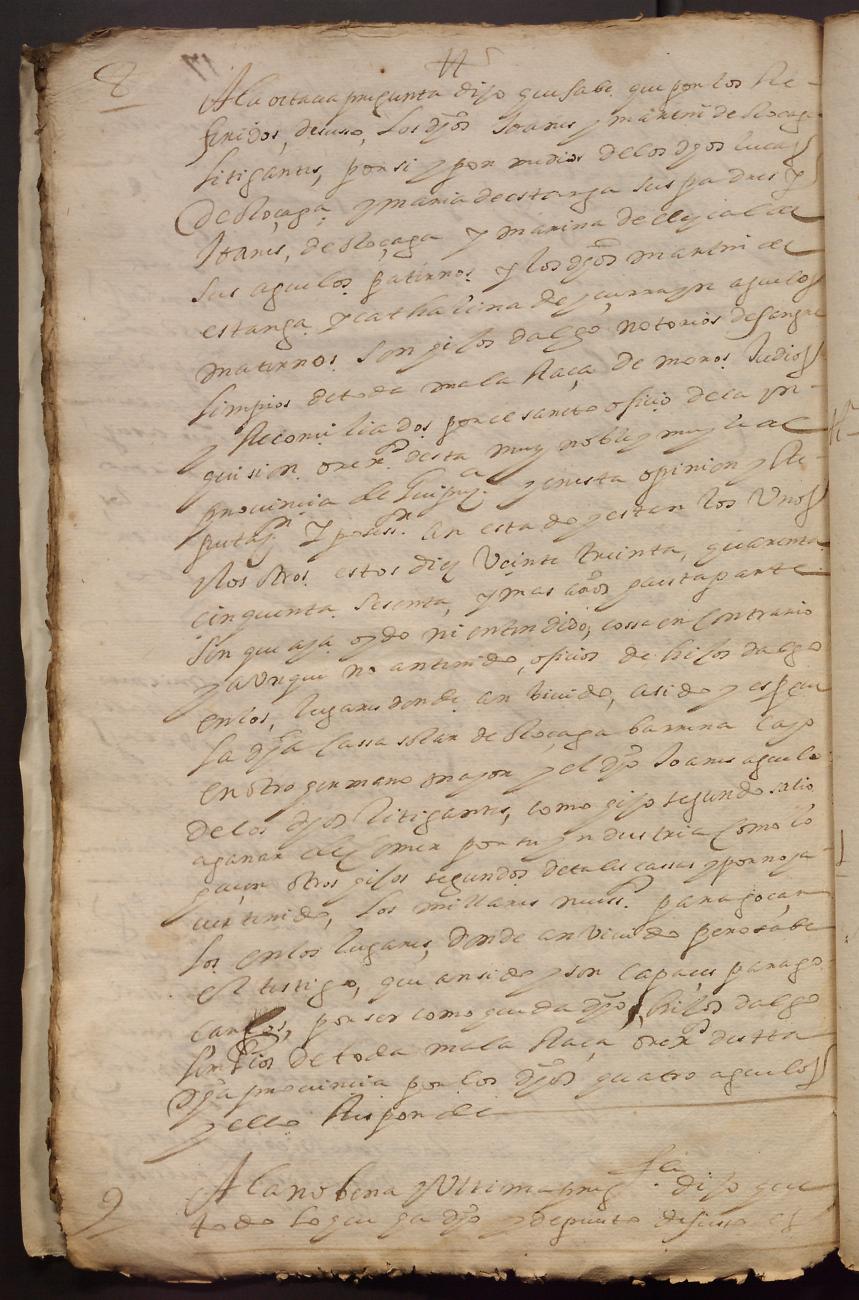 8
A la octava pregunta dijo que sabe que por los Re-
feridos, desuso, los dhos Joanes y martin de Roçaga
litigantes, por si y por medio de los dhos lucas
de Roçaga, y maria de estanga sus padres y
Joanes, de Roçaga y marina de
sus aguelos paternos y los dhos martin de
estanga y cathalina de aguelos
maternos son hijos dalgo notorios de sangre
limpios de toda mala Raça de moros Judios
y Reconciliados por el sancto oficio de la yn-
quision desta muy noble y muy leal
provincia de Guipuzª y en esta opinion y Re-
putaon y posesn an estado y estan los unos
y los otros estos diez veinte treinta, quarenta
cinquenta sesenta, y mas años a esta parte
sin que aya oydo ni entendido, cossa en contrario
y aunque no an tenido, oficios de hijos dalgo
en los, lugares donde an bivido, a sido y es que
la dha cassa solar de Roçaga barrena cayo
en otro hermano mayor y el dho Joanes aguelo
de los dhos litigantes, como hijo segundo salio
a ganar de comer por su yndustria como lo
haçen otros hijos segundos de tales cassas y por no ja-
ver tenido, los millares para goçar
los en los lugares, donde an vivido pero sabe
el testigo, que an sido y son capaces para go
çarlos, por ser como queda dho, hijos dalgo
limpios de toda mala Raça desta
dha provincia por los dhos quatro aguelos
y esto Responde
9
A la nobena y ultima pregta dijo que
todo lo que ha dho y depuesto desuso es